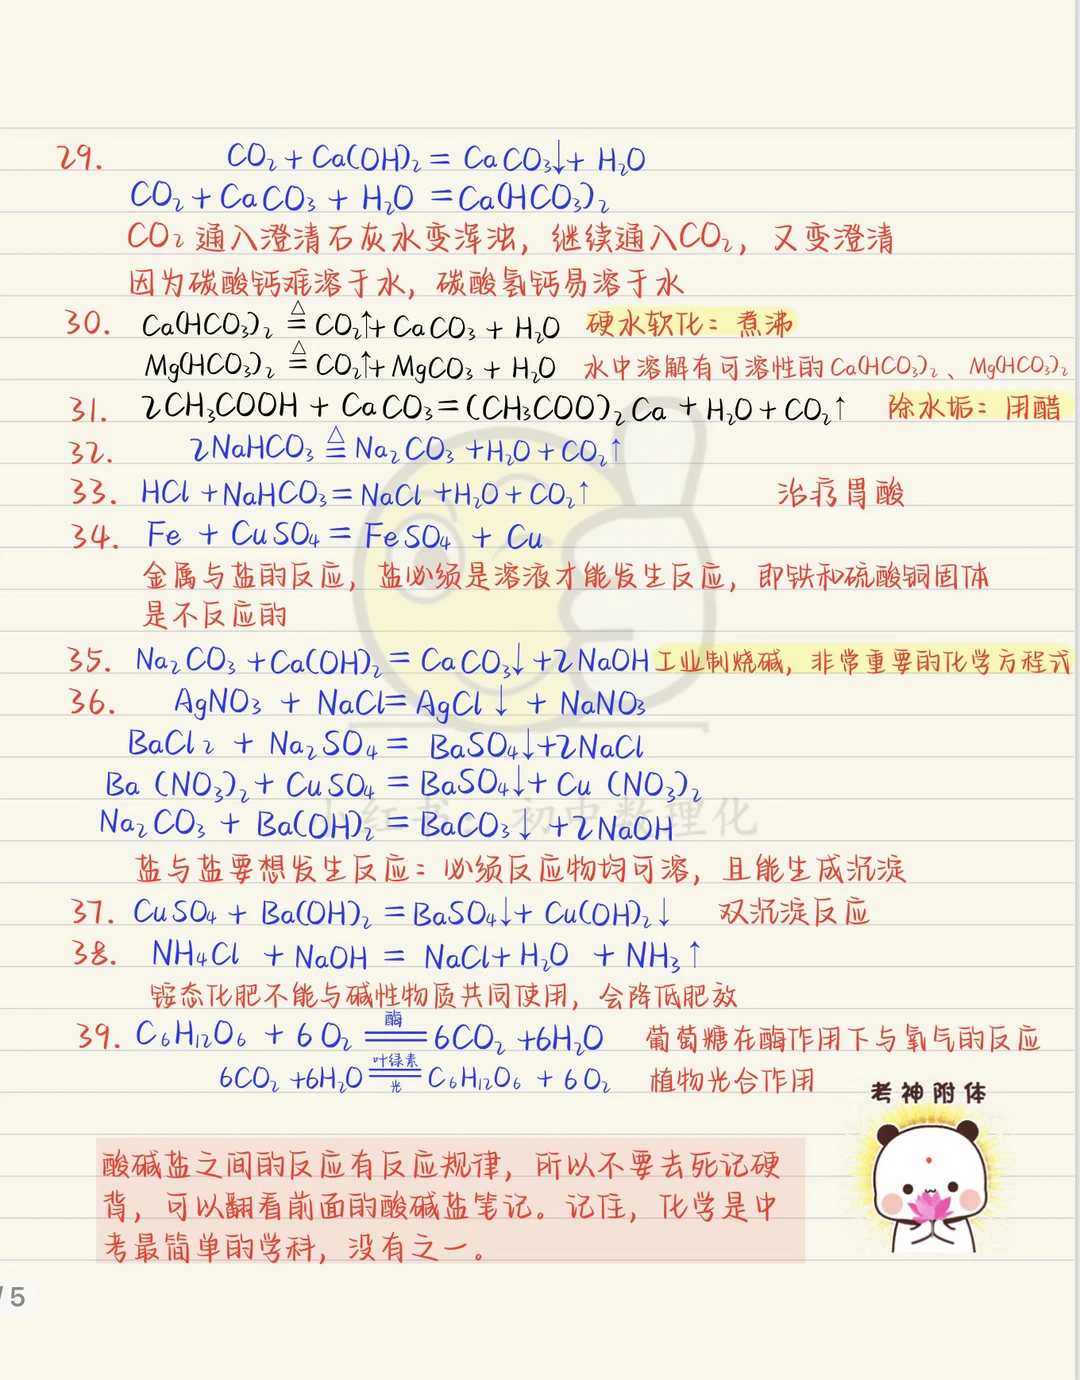 29. CO₂ + Ca(OH)₂ = CaCO₃↓ + H₂O
CO₂ + CaCO₃ + H₂O = Ca(HCO₃)₂
CO₂ 通入澄清石灰水变浑浊，继续通入CO₂，又变澄清
因为碳酸钙难溶于水，碳酸氢钙易溶于水
30. Ca(HCO₃)₂ ≜ CO₂↑ + CaCO₃ + H₂O 硬水软化：煮沸
Mg(HCO₃)₂ ≜ CO₂↑ + MgCO₃ + H₂O 水中溶解有可溶性的Ca(HCO₃)₂、Mg(HCO₃)₂
31. 2CH₃COOH + CaCO₃ = (CH₃COO)₂Ca + H₂O + CO₂↑ 除水垢：用醋
32. 2NaHCO₃ ≜ Na₂CO₃ + H₂O + CO₂↑
33. HCl + NaHCO₃ = NaCl + H₂O + CO₂↑ 治疗胃酸
34. Fe + CuSO₄ = FeSO₄ + Cu
金属与盐的反应，盐必须是溶液才能发生反应，即铁和硫酸铜固体
是不反应的
35. Na₂CO₃ + Ca(OH)₂ = CaCO₃↓ + 2NaOH 工业制烧碱，非常重要的化学方程式
36. AgNO₃ + NaCl = AgCl↓ + NaNO₃
BaCl₂ + Na₂SO₄ = BaSO₄↓ + 2NaCl
Ba(NO₃)₂ + CuSO₄ = BaSO₄↓ + Cu(NO₃)₂
小红书：初中数理化
Na₂CO₃ + Ba(OH)₂ = BaCO₃↓ + 2NaOH
盐与盐要想发生反应：必须反应物均可溶，且能生成沉淀
37. CuSO₄ + Ba(OH)₂ = BaSO₄↓ + Cu(OH)₂↓ 双沉淀反应
38. NH₄Cl + NaOH = NaCl + H₂O + NH₃↑
铵态化肥不能与碱性物质共同使用，会降低肥效
酶
39. C₆H₁₂O₆ + 6O₂ = 6CO₂ + 6H₂O 葡萄糖在酶作用下与氧气的反应
叶绿素
6CO₂ + 6H₂O = C₆H₁₂O₆ + 6O₂ 植物光合作用
光
考神附体
酸碱盐之间的反应有反应规律，所以不要去死记硬
背，可以翻看前面的酸碱盐笔记。记住，化学是中
考最简单的学科，没有之一。
/5